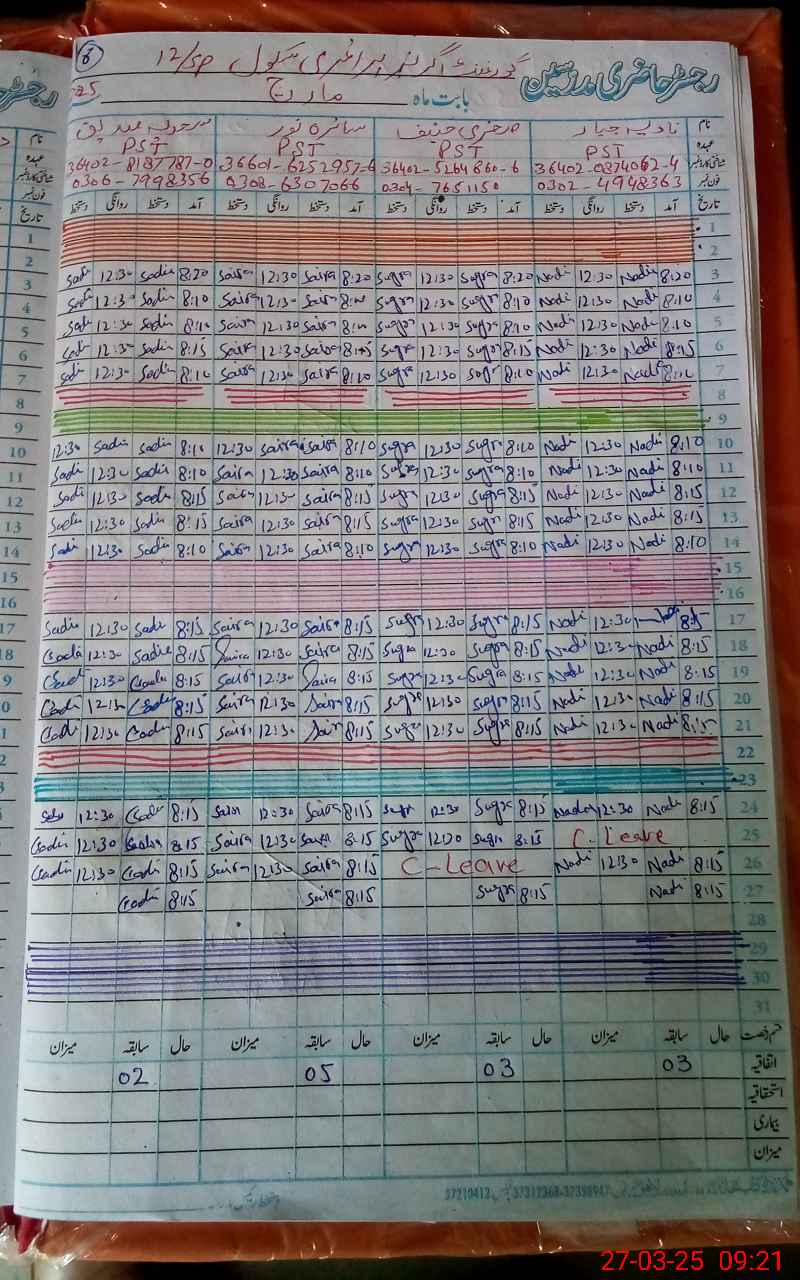 6 گورنمنٹ گرلز پرائمری سکول 12/SP رجسٹر حاضری مدرسین
بابت ماہ مارچ 25
نام نادیہ جبار صغریٰ حنیف سائرہ نور
عہدہ PST PST PST PST
36402-0874062-4 36402-5264860-6 36601-6252957-6 36402-8187787-0
فون نمبر 0302-4948363 0304-7651150 0308-6307066 0306-7998356
تاریخ آمد دستخط روانگی دستخط آمد دستخط روانگی دستخط آمد دستخط روانگی دستخط آمد دستخط روانگی دستخط
1
2
3 8:20 Nadi 12:30 Nadi 8:20 Sugra 12:30 Sugra 8:20 Saira 12:30 Saira 8:20 Sadia 12:30 Sadi
4 8:10 Nadi 12:30 Nadi 8:10 Sugra 12:30 Sugra 8:10 Saira 12:30 Saira 8:10 Sadia 12:30 Sadi
5 8:10 Nadi 12:30 Nadi 8:10 Sugra 12:30 Sugra 8:10 Saira 12:30 Saira 8:10 Sadia 12:30 Sadi
6 8:15 Nadi 12:30 Nadi 8:15 Sugra 12:30 Sugra 8:15 Saira 12:30 Saira 8:15 Sadia 12:30 Sadi
7 8:10 Nadi 12:30 Nadi 8:10 Sugra 12:30 Sugra 8:10 Saira 12:30 Saira 8:10 Sadia 12:30 Sadi
8
9
10 8:10 Nadi 12:30 Nadi 8:10 Sugra 12:30 Sugra 8:10 Saira Saira 12:30 8:10 Sadia Sadia 12:30
11 8:10 Nadi 12:30 Nadi 8:10 Sugra 12:30 Sugra 8:10 Saira 12:30 Saira 8:10 Sadia 12:30 Sadi
12 8:15 Nadi 12:30 Nadi 8:15 Sugra 12:30 Sugra 8:15 Saira 12:30 Saira 8:15 Sadia 12:30 Sadi
13 8:15 Nadi 12:30 Nadi 8:15 Sugra 12:30 Sugra 8:15 Saira 12:30 Saira 8:15 Sadia 12:30 Sadia
14 8:10 Nadi 12:30 Nadi 8:10 Sugra 12:30 Sugra 8:10 Saira 12:30 Saira 8:10 Sadia 12:30 Sadi
15
16
17 8:15 12:30 Nadi 8:15 Sugra 12:30 Sugra 8:15 Saira 12:30 Saira 8:15 Sadi 12:30 Sadia
18 8:15 Nadi 12:30 Nadi 8:15 Sugra 12:30 Sugra 8:15 Saira 12:30 Saira 8:15 Sadia 12:30 Sadi
19 8:15 Nadi 12:30 Nadi 8:15 Sugra 12:30 Sugra 8:15 Saira 12:30 Saira 8:15 Sadia 12:30 Sadi
20 8:15 Nadi 12:30 Nadi 8:15 Sugra 12:30 Sugra 8:15 Saira 12:30 Saira 8:15 Sadi 12:30 Sadi
21 8:15 Nadi 12:30 Nadi 8:15 Sugra 12:30 Sugra 8:15 Saira 12:30 Saira 8:15 Sadi 12:30 Sadi
22
23
24 8:15 Nadi 12:30 Nadia 8:15 Sugra 12:30 Sugra 8:15 Saira 12:30 Saira 8:15 Sadi 12:30
25 C-Leave 8:15 Sugra 12:30 Sugra 8:15 Saira 12:30 Saira 8:15 Sadia 12:30 Sadia
26 8:15 Nadi 12:30 Nadi C-Leave 8:15 Saira 12:30 Saira 8:15 Sadi 12:30 Sadia
27 8:15 Nadi 8:15 Sugra 8:15 Saira 8:15 Sadi
28
29
30
31
قسم رخصت حال سابقہ میزان حال سابقہ میزان حال سابقہ میزان حال سابقہ میزان
اتفاقیہ 03 03 05 02
استحقاقیہ
بیماری
میزان
37210412 37312368-37398947
27-03-25 09:21